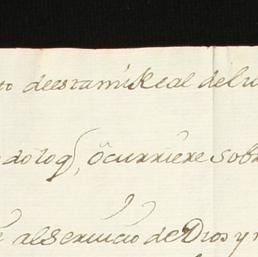 to deesta mi Real delib
do loq, ocurriere sobr
al seruicio de Dios y